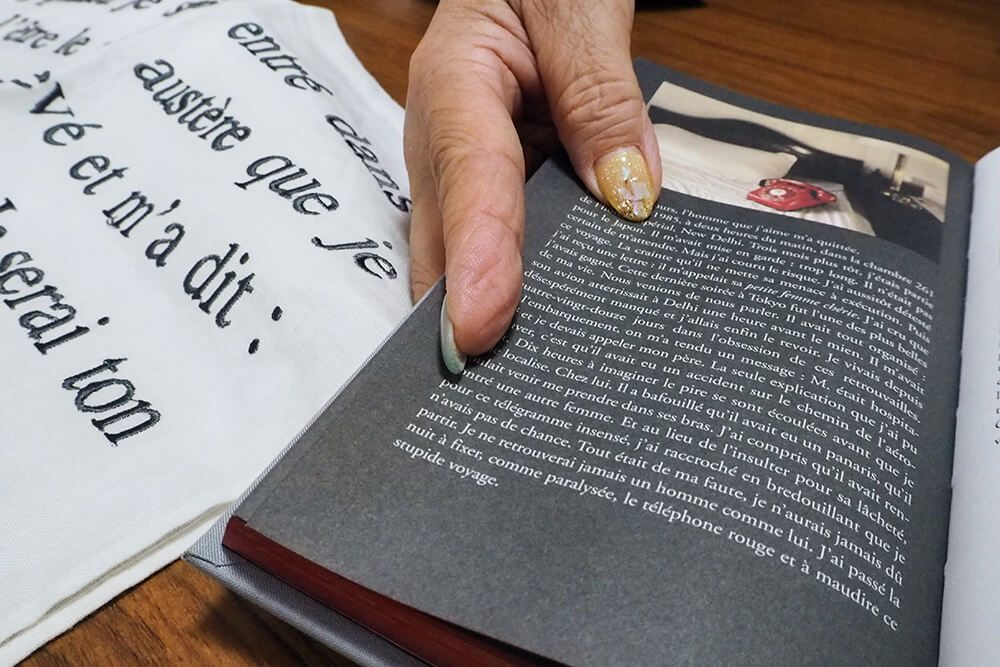 l'être le
entré dans
austère que je
vé et m'a dit :
serai ton
l'homme que j'aime m'a quittée.
1985, à deux heures du matin, dans la chambre 261
de l'hôtel Impérial, New Delhi. Trois mois plus tôt, j'étais partie
pour le Japon. Il m'avait mise en garde : trop long. Il n'était pas
certain de m'attendre. Mais j'ai couru le risque. J'ai aussitôt détesté
ce voyage. La crainte qu'il ne mette sa menace à exécution. Puis
j'ai reçu une lettre : il m'appelait sa petite femme chérie. J'ai cru que
j'avais gagné. Cette dernière soirée à Tokyo fut l'une des plus belles
de ma vie. Nous venions de nous parler. Il avait tout organisé,
son avion atterrissait à Delhi une heure avant le mien. Il m'avait
désespérément manqué et j'allais enfin le revoir. Je vivais depuis
vingt-douze jours dans l'obsession de ces retrouvailles.
embarquement on m'a tendu un message : M. était hospita-
je devais appeler mon père. La seule explication que j'ai pu
c'est qu'il avait eu un accident sur le chemin de l'aéro-
Dix heures à imaginer le pire se sont écoulées avant que je
localise. Chez lui. Il a bafouillé qu'il avait eu un panaris, qu'il
venir me prendre dans ses bras. J'ai compris qu'il avait ren-
contré une autre femme. Et au lieu de l'insulter pour sa lâcheté,
pour ce télégramme insensé, j'ai raccroché en bredouillant que je
n'avais pas de chance. Tout était de ma faute, je n'aurais jamais dû
partir. Je ne retrouverai jamais un homme comme lui. J'ai passé la
nuit à fixer, comme paralysée, le téléphone rouge et à maudire ce
stupide voyage.